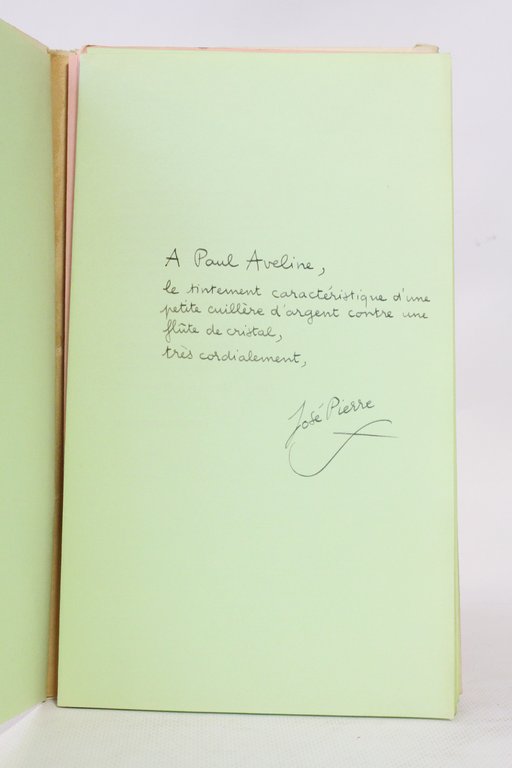 A Paul Aveline,
le tintement caractéristique d'une
petite cuillère d'argent contre une
flûte de cristal,
très cordialement,
José Pierre